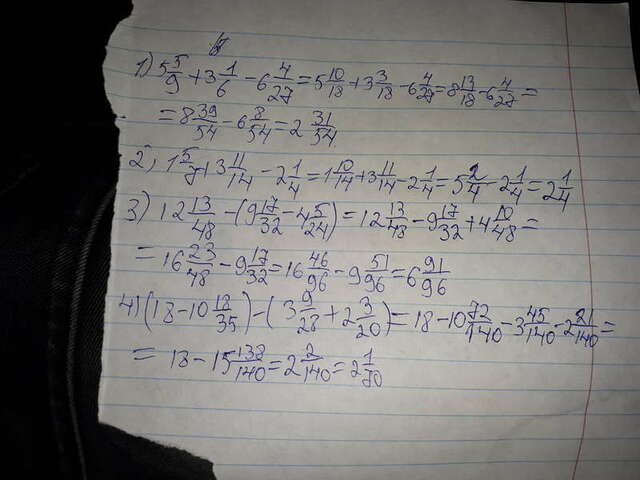 1) 5 5/9 + 3 1/6 - 6 4/27 = 5 10/18 + 3 3/18 - 6 4/27 = 8 13/18 - 6 4/27 =
= 8 39/54 - 6 8/54 = 2 31/54
2) 1 5/7 + 3 11/14 - 2 1/4 = 1 10/14 + 3 11/14 - 2 1/4 = 5 2/4 - 2 1/4 = 2 1/24
3) 12 13/48 - (9 17/32 - 4 5/24) = 12 13/48 - 9 17/32 + 4 10/48 =
= 16 23/48 - 9 17/32 = 16 46/96 - 9 51/96 = 6 91/96
4) (18 - 10 18/35) - (3 9/28 + 2 3/20) = 18 - 10 72/140 - 3 45/140 - 2 21/140 =
= 18 - 15 138/140 = 2 2/140 = 2 1/70